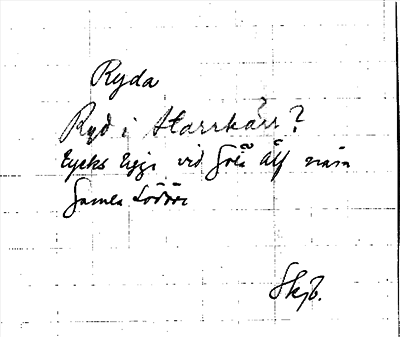 Ryda
Ryd i Starrkärr?
tycks ligga vid Göta älf nära
Gamla Lödöse
Skjb.